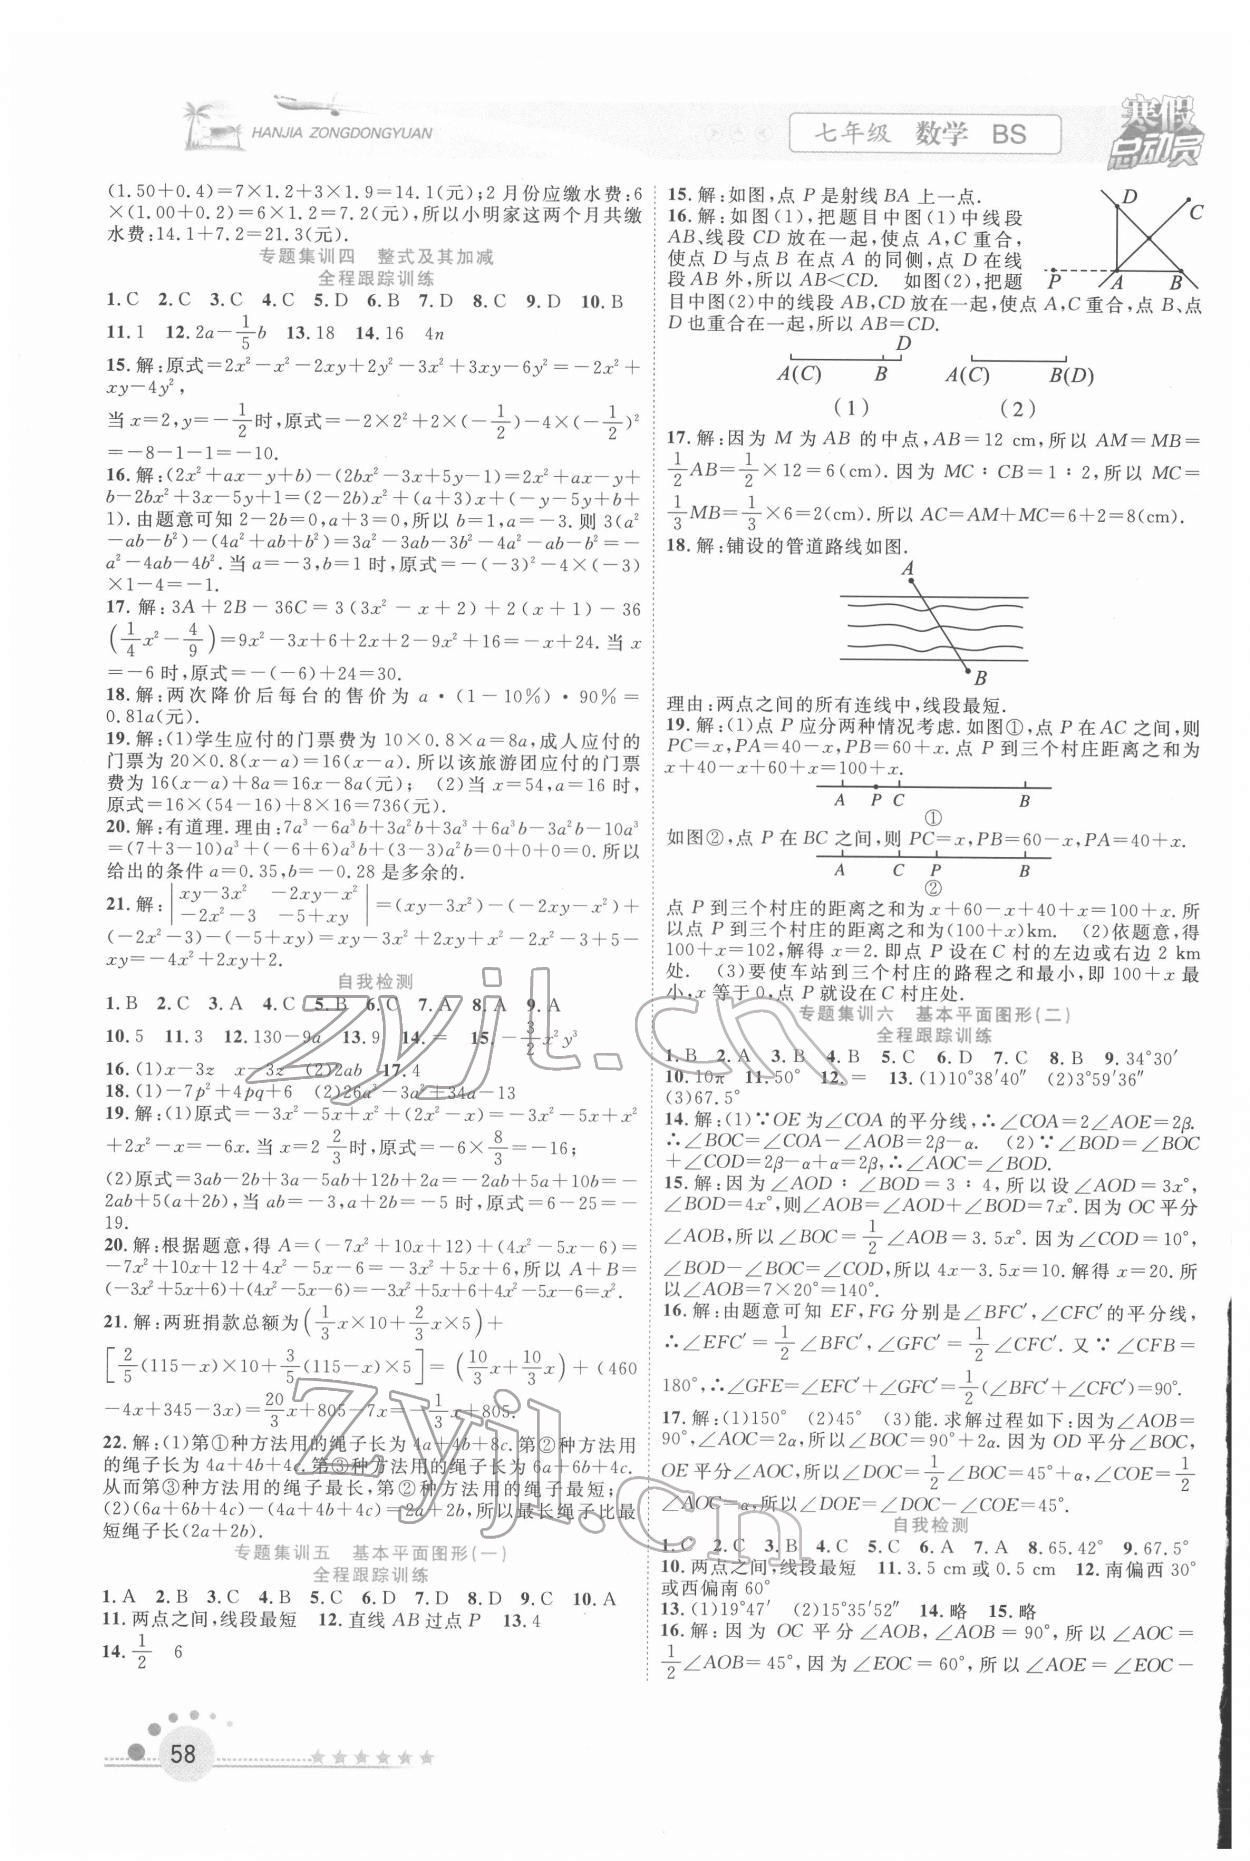 HANJIA ZONGDONGYUAN
七年级 数学 BS
寒假
总动员
(1.50+0.4)=7×1.2+3×1.9=14.1(元);2 月份应缴水费:6
×(1.00+0.2)=6×1.2=7.2(元),所以小明家这两个月共缴
水费:14.1+7.2=21.3(元).
专题集训四 整式及其加减
全程跟踪训练
1.C 2.C 3.C 4.C 5.D 6.B 7.D 8.C 9.D 10.B
11.1 12.2a-1/5b 13.18 14.16 4n
15.解:原式=2x²-x²-2xy+2y²-3x²+3xy-6y²=-2x²+
xy-4y²,
当 x=2,y=-1/2时,原式=-2×2²+2×(-1/2)-4×(-1/2)²
=-8-1-1=-10.
16.解:(2x²+ax-y+b)-(2bx²-3x+5y-1)=2x²+ax-y+
b-2bx²+3x-5y+1=(2-2b)x²+(a+3)x+(-y-5y+b+
1).由题意可知 2-2b=0,a+3=0,所以 b=1,a=-3.则 3(a²
-ab-b²)-(4a²+ab+b²)=3a²-3ab-3b²-4a²-ab-b²=-
a²-4ab-4b².当 a=-3,b=1 时,原式=-(-3)²-4×(-3)
×1-4=-1.
17.解:3A+2B-36C=3(3x²-x+2)+2(x+1)-36
(1/4x²-4/9)=9x²-3x+6+2x+2-9x²+16=-x+24.当 x
=-6 时,原式=-(-6)+24=30.
18.解:两次降价后每台的售价为 a·(1-10%)·90%=
0.81a(元).
19.解:(1)学生应付的门票费为 10×0.8×a=8a,成人应付的
门票为 20×0.8(x-a)=16(x-a).所以该旅游团应付的门票
费为 16(x-a)+8a=16x-8a(元); (2)当 x=54,a=16 时,
原式=16×(54-16)+8×16=736(元).
20.解:有道理.理由:7a³-6a³b+3a²b+3a³+6a³b-3a²b-10a³
=(7+3-10)a³+(-6+6)a³b+(3-3)a²b=0+0+0=0.所以
给出的条件 a=0.35,b=-0.28 是多余的.
21.解:|xy-3x² -2xy-x²|
|-2x²-3 -5+xy|=(xy-3x²)-(-2xy-x²)+
(-2x²-3)-(-5+xy)=xy-3x²+2xy+x²-2x²-3+5-
xy=-4x²+2xy+2.
自我检测
1.B 2.C 3.A 4.C 5.B 6.C 7.A 8.A 9.A
10.5 11.3 12.130-9a 13.9 14.= 15.-3/2x²y³
16.(1)x-3z x-3z (2)2ab 17.4
18.(1)-7p²+4pq+6 (2)26a³-3a²+34a-13
19.解:(1)原式=-3x²-5x+x²+(2x²-x)=-3x²-5x+x²
+2x²-x=-6x.当 x=2 2/3时,原式=-6×8/3=-16;
(2)原式=3ab-2b+3a-5ab+12b+2a=-2ab+5a+10b=-
2ab+5(a+2b),当 ab=-3,a+2b=-5 时,原式=6-25=-
19.
20.解:根据题意,得 A=(-7x²+10x+12)+(4x²-5x-6)=
-7x²+10x+12+4x²-5x-6=-3x²+5x+6,所以 A+B=
(-3x²+5x+6)+(4x²-5x-6)=-3x²+5x+6+4x²-5x-6=x².
21.解:两班捐款总额为(1/3x×10+2/3x×5)+
[2/5(115-x)×10+3/5(115-x)×5]=(10/3x+10/3x)+(460
-4x+345-3x)=20/3x+805-7x=-1/3x+805.
22.解:(1)第①种方法用的绳子长为 4a+4b+8c.第②种方法用
的绳子长为 4a+4b+4c.第③种方法用的绳子长为 6a+6b+4c.
从而第③种方法用的绳子最长,第②种方法用的绳子最短;
(2)(6a+6b+4c)-(4a+4b+4c)=2a+2b,所以最长绳子比最
短绳子长(2a+2b).
专题集训五 基本平面图形(一)
全程跟踪训练
1.A 2.B 3.C 4.B 5.C 6.D 7.D 8.D 9.C 10.A
11.两点之间,线段最短 12.直线 AB 过点 P 13.4
14.1/2 6
15.解:如图,点 P 是射线 BA 上一点.
16.解:如图(1),把题目中图(1)中线段
AB、线段 CD 放在一起,使点 A,C 重合,
使点 D 与点 B 在点 A 的同侧,点 D 在线
段 AB 外,所以 AB<CD. 如图(2),把题
目中图(2)中的线段 AB,CD 放在一起,使点 A,C 重合,点 B、点
D 也重合在一起,所以 AB=CD.
D
C
P A B
D
A(C) B A(C) B(D)
(1) (2)
17.解:因为 M 为 AB 的中点,AB=12 cm,所以 AM=MB=
1/2AB=1/2×12=6(cm).因为 MC∶CB=1∶2,所以 MC=
1/3MB=1/3×6=2(cm).所以 AC=AM+MC=6+2=8(cm).
18.解:铺设的管道路线如图.
A
B
理由:两点之间的所有连线中,线段最短.
19.解:(1)点 P 应分两种情况考虑.如图①,点 P 在 AC 之间,则
PC=x,PA=40-x,PB=60+x.点 P 到三个村庄距离之和为
x+40-x+60+x=100+x.
A P C B
①
如图②,点 P 在 BC 之间,则 PC=x,PB=60-x,PA=40+x.
A C P B
②
点 P 到三个村庄的距离之和为 x+60-x+40+x=100+x.所
以点 P 到三个村庄的距离之和为(100+x)km. (2)依题意,得
100+x=102,解得 x=2.即点 P 设在 C 村的左边或右边 2 km
处. (3)要使车站到三个村庄的路程之和最小,即 100+x 最
小,x 等于 0,点 P 就设在 C 村庄处.
专题集训六 基本平面图形(二)
全程跟踪训练
1.B 2.A 3.B 4.B 5.C 6.D 7.C 8.B 9.34°30′
10.10π 11.50° 12.= 13.(1)10°38′40″ (2)3°59′36″
(3)67.5°
14.解:(1)∵OE 为∠COA 的平分线,∴∠COA=2∠AOE=2β.
∴∠BOC=∠COA-∠AOB=2β-α. (2)∵∠BOD=∠BOC
+∠COD=2β-α+α=2β,∴∠AOC=∠BOD.
15.解:因为∠AOD∶∠BOD=3∶4,所以设∠AOD=3x°,
∠BOD=4x°,则∠AOB=∠AOD+∠BOD=7x°.因为 OC 平分
∠AOB,所以∠BOC=1/2∠AOB=3.5x°.因为∠COD=10°,
∠BOD-∠BOC=∠COD,所以 4x-3.5x=10.解得 x=20.所
以∠AOB=7×20°=140°.
16.解:由题意可知 EF,FG 分别是∠BFC′,∠CFC′的平分线,
∴∠EFC′=1/2∠BFC′,∠GFC′=1/2∠CFC′.又∵∠CFB=
180°,∴∠GFE=∠EFC′+∠GFC′=1/2(∠BFC′+∠CFC′)=90°.
17.解:(1)150° (2)45° (3)能.求解过程如下:因为∠AOB=
90°,∠AOC=2α,所以∠BOC=90°+2α.因为 OD 平分∠BOC,
OE 平分∠AOC,所以∠DOC=1/2∠BOC=45°+α,∠COE=1/2
∠AOC=α,所以∠DOE=∠DOC-∠COE=45°.
自我检测
1.C 2.C 3.B 4.C 5.C 6.A 7.A 8.65.42° 9.67.5°
10.两点之间,线段最短 11.3.5 cm或 0.5 cm 12.南偏西 30°
或西偏南 60°
13.(1)19°47′ (2)15°35′52″ 14.略 15.略
16.解:因为 OC 平分∠AOB,∠AOB=90°,所以∠AOC=
1/2∠AOB=45°,因为∠EOC=60°,所以∠AOE=∠EOC-
58
zyjl.cn
zyjl.cn